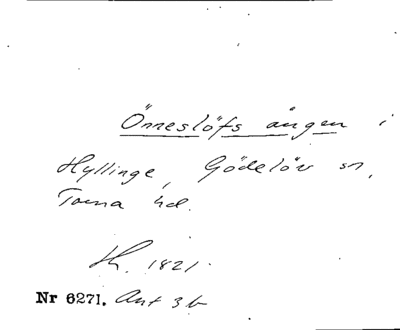 Önneslöfs ängen i
Hyllinge, Gödelöv sn,
Torna hd.
Lh. 1821.
Nr 6271. Ant 3 b